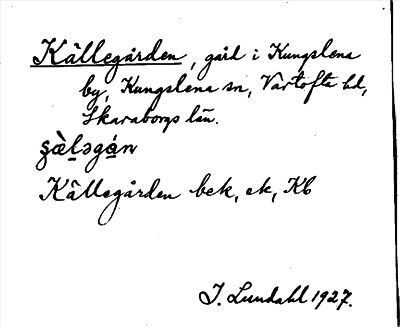 Källegården, gård i Kungslena
by, Kungslena sn, Vartofta hd,
Skaraborgs län.
Källegården bek, ek, Kb
I. Lundahl 1927.